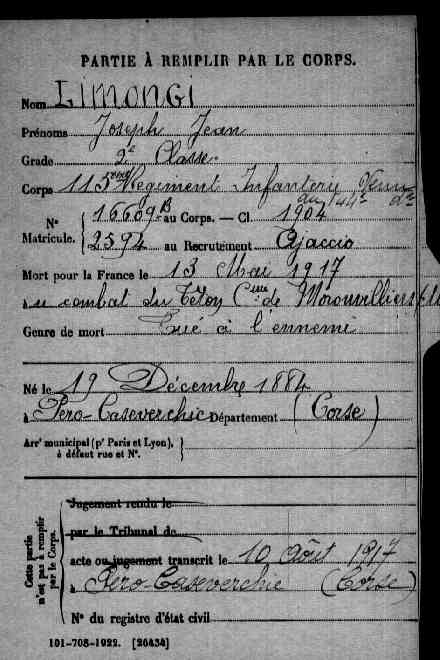 PARTIE À REMPLIR PAR LE CORPS.
Nom LIMONGI
Prénoms Joseph Jean
Grade 2e Classe
Corps 115ème Regiment Infanterie
au 144e de
Nº Matricule. 16609 B au Corps. — Cl. 1904
2594 au Recrutement Ajaccio
Mort pour la France le 13 Mai 1917
au combat du Téton Cne de Morouvilliers
Genre de mort Tué à l'ennemi
Né le 19 Décembre 1884
à Pero-Casevecchie Département (Corse)
Arrt municipal (pr Paris et Lyon),
à défaut rue et Nº.
Cette partie n'est pas à remplir par le Corps.
Jugement rendu le
par le Tribunal de
acte ou jugement transcrit le 10 Août 1917
à Pero-Casevecchie (Corse)
Nº du registre d'état civil
101-708-1922. [26434]